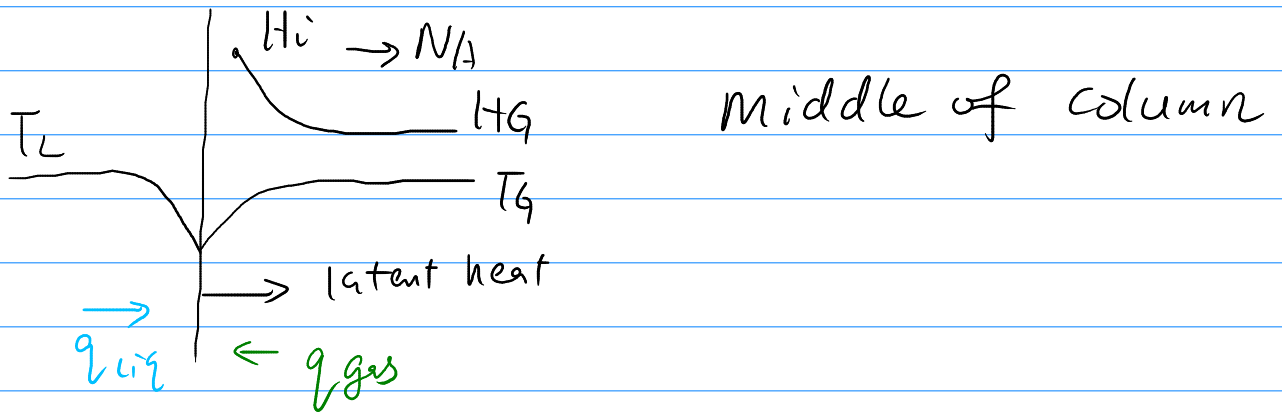 Hi → N/A
HG
Middle of column
TL
TG
→ latent heat
→
q liq
← q gas